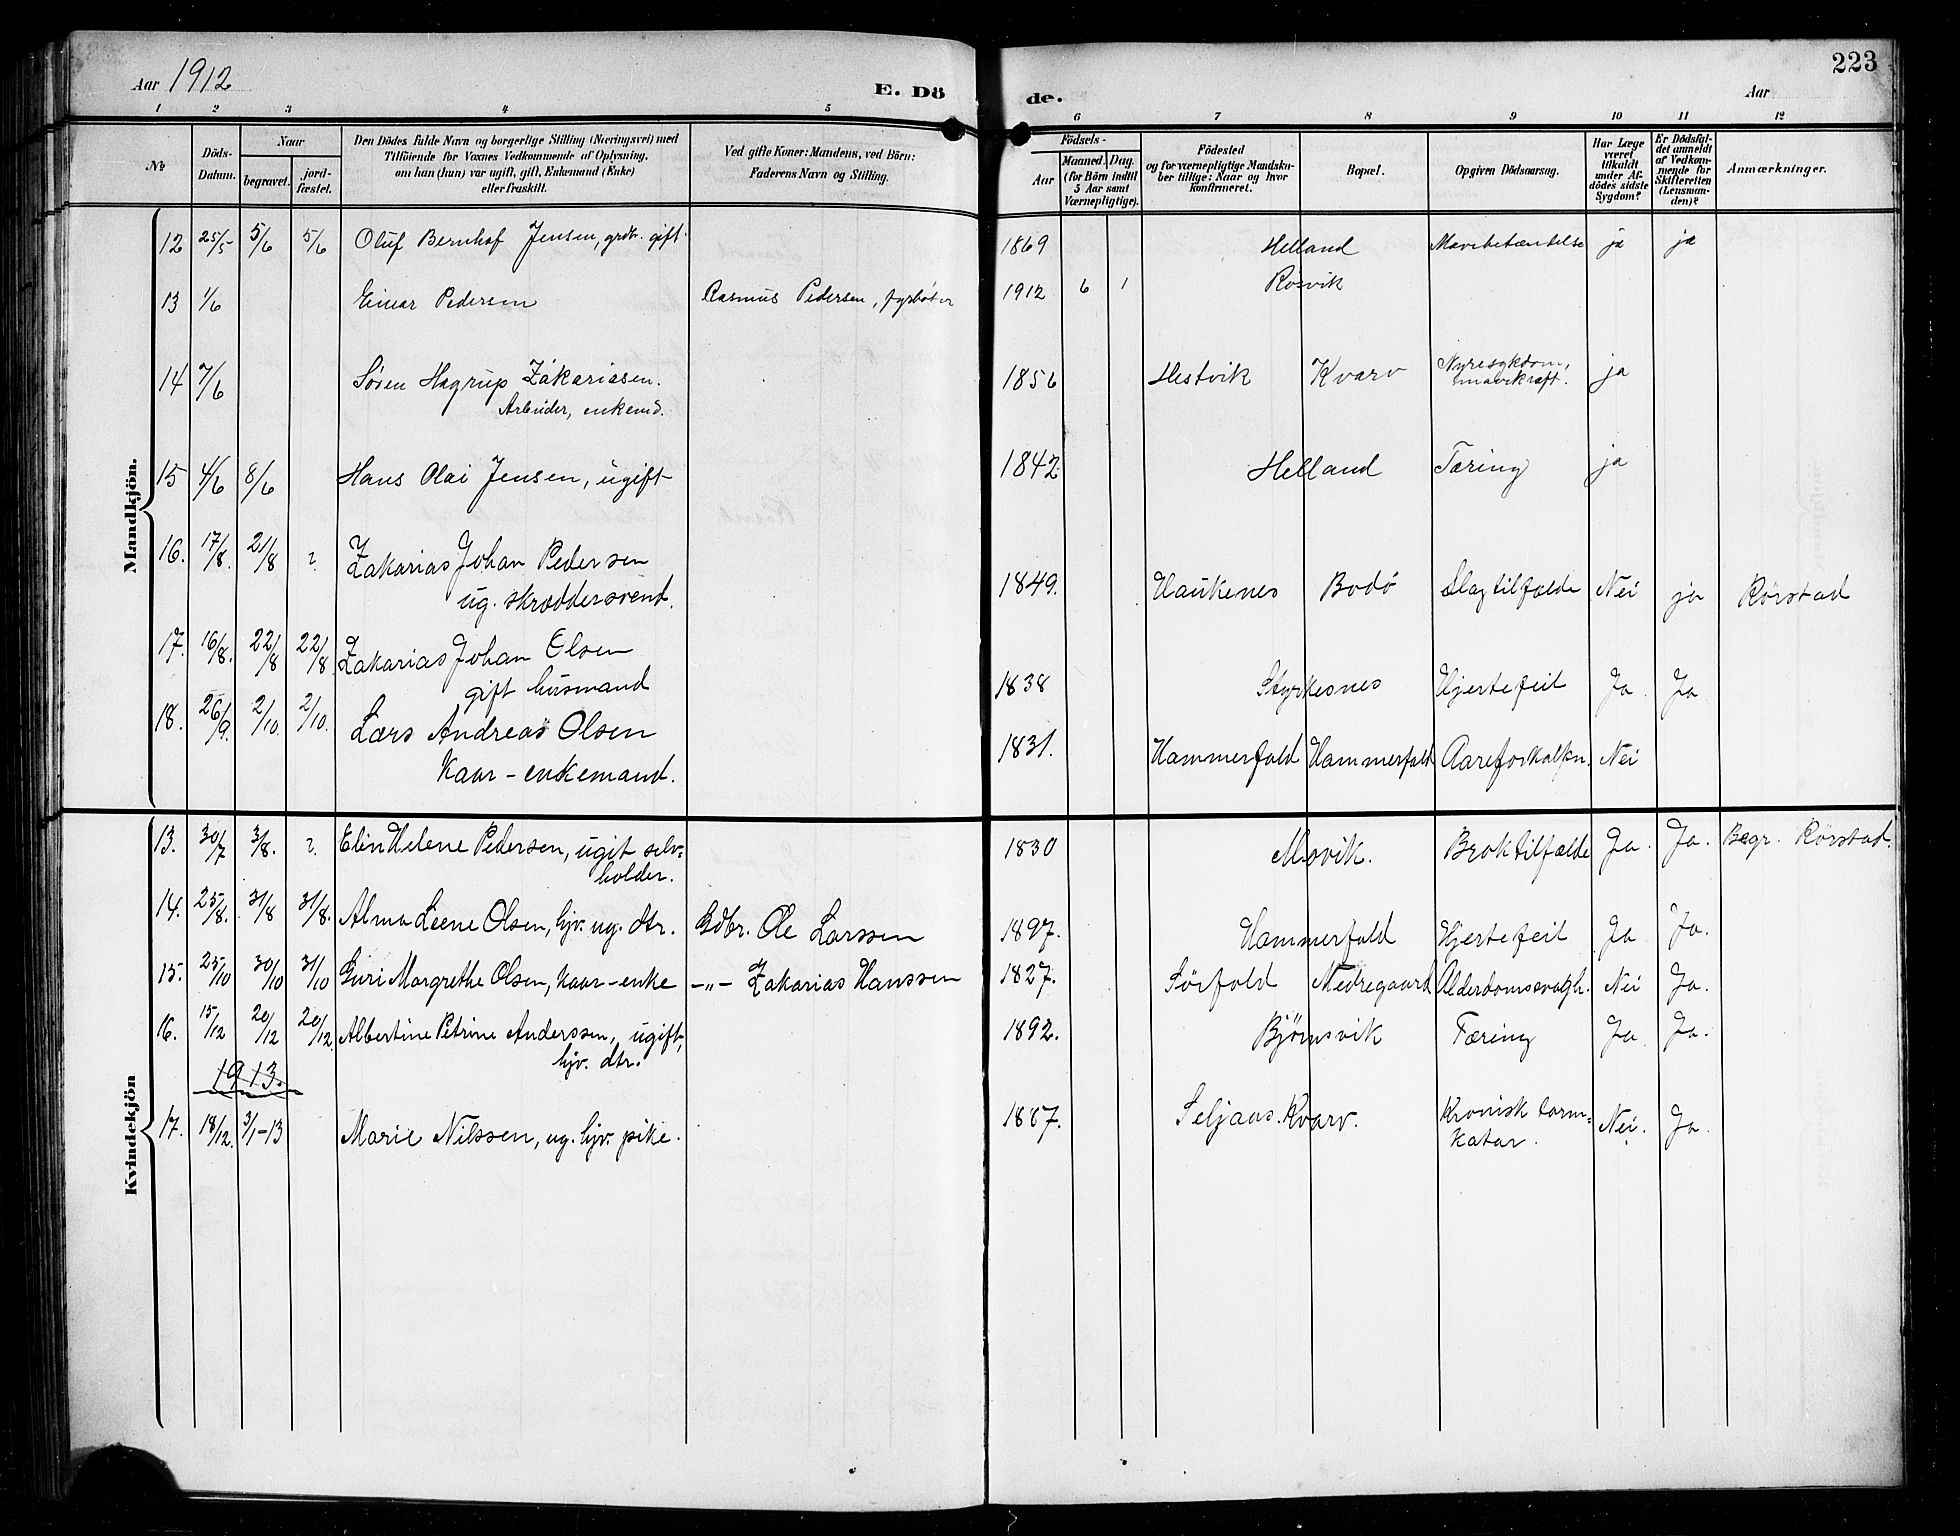 Aar 1912 E. Dö de. Aar 223
1 2 3 4 5 6 7 8 9 10 11 12
No. Döds-Datum. Naar begravet. jord-fæstet. Den Dödes fulde Navn og borgerlige Stilling (Næringsvei) med Tilföiende for Voxnes Vedkommende af Oplysning, om han (hun) var ugift, gift, Enkemand (Enke) eller fraskilt. Ved gifte Koner: Mandens, ved Börn: Faderens Navn og Stilling. Födsels- Aar Maaned. Dag. (for Börn indtil 5 Aar samt Værnepligtige). Födested og for værnepligtige Mandsku-ber tillige: Naar og hvor konfirmeret. Bopæl. Opgiven Dödsaarsag. Har Læge været tilkaldt under Af-dödes sidste Sygdom? Er Dödsfal-det anmeldt af Vedkom-mende for Skifteretten (Lensman-den)? Anmærkninger.
Mandkjön.
12 25/5 5/6 5/6 Oluf Bernhof Jensen, grdbr. gift. 1869 Helland Mavebetændelse ja ja
13 1/6 Einar Pedersen Rasmus Pedersen, fyrbøter 1912 6 1 Røsvik
14 7/6 Søren Hagrup Zakariasen. 1856 Hestvik Kvarv Nyresykdom, ja
Arbeider, enkemd. mavekræft.
15 4/6 8/6 Hans Olai Jensen, ugift 1842 Helland Tæring ja
16. 17/8. 21/8 ?. Zakarias Johan Pedersen
ug. skræddersvend. 1849. Haukenes Bodö Slagtilfælde Nei ja Rörstad
17. 16/8. 22/8 22/8. Zakarias Johan Olsen
gift husmand 1838 Styrkesnes Hjertefeil Ja Ja
18. 26/9. 2/10. 2/10. Lars Andreas Olsen
Kaar-enkemand. 1831. Hammerfald Hammerfald Aareforkalkn. Nei
Kvindekjön
13. 30/7 3/8. ?. Elen Helene Pedersen, ugit selv- 1830 Mosvik. Broktilfælde Ja. Ja. Begr. Rörstad.
holder.
14. 25/8. 31/8 31/8. Alma Leene Olsen, hjv. ug. dtr. Gdbr. Ole Larssen 1897. Hammerfald Hjertefeil Ja Ja.
15. 25/10 30/10 31/10 Guri Margrethe Olsen, kaar-enke -„- Zakarias Hanssen 1827. Sörfold Nedregaard Alderdomssvagh. Nei Ja.
16. 15/12 20/12 20/12. Albertine Petrine Anderssen, ugift, 1892. Bjørnsvik Tæring Ja Ja.
hjv. dtr.
1913.
17. 18/12. 3/1-13 Marie Nilssen, ug. hjv. pike. 1887. Seljaas. Kvarv. Kronisk tarm- Nei. Ja.
katar.